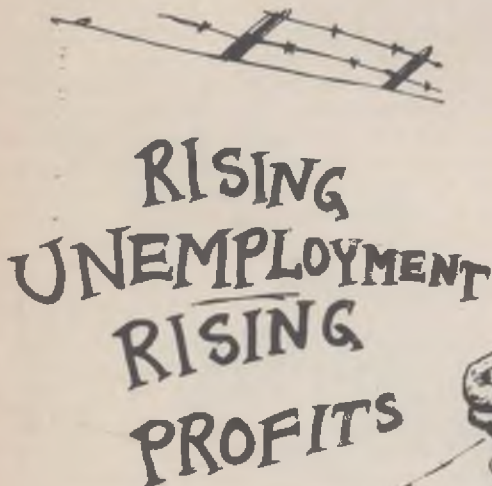 RISING
UNEMPLOYMENT
RISING
PROFITS